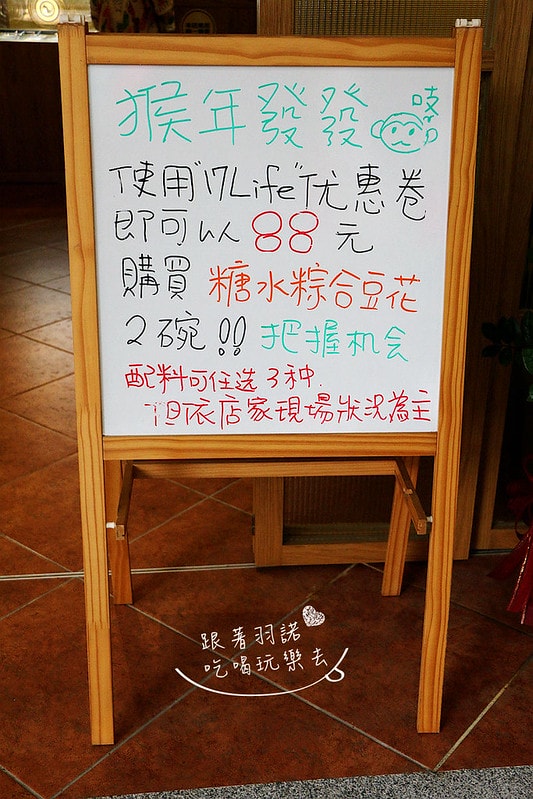 猴年發發 吱
使用"17Life"优惠卷
即可以88元
購買 糖水粽合豆花
2碗!! 把握机会
配料可任选3种.
但依店家現場狀況為主
跟著羽諾
吃喝玩樂去